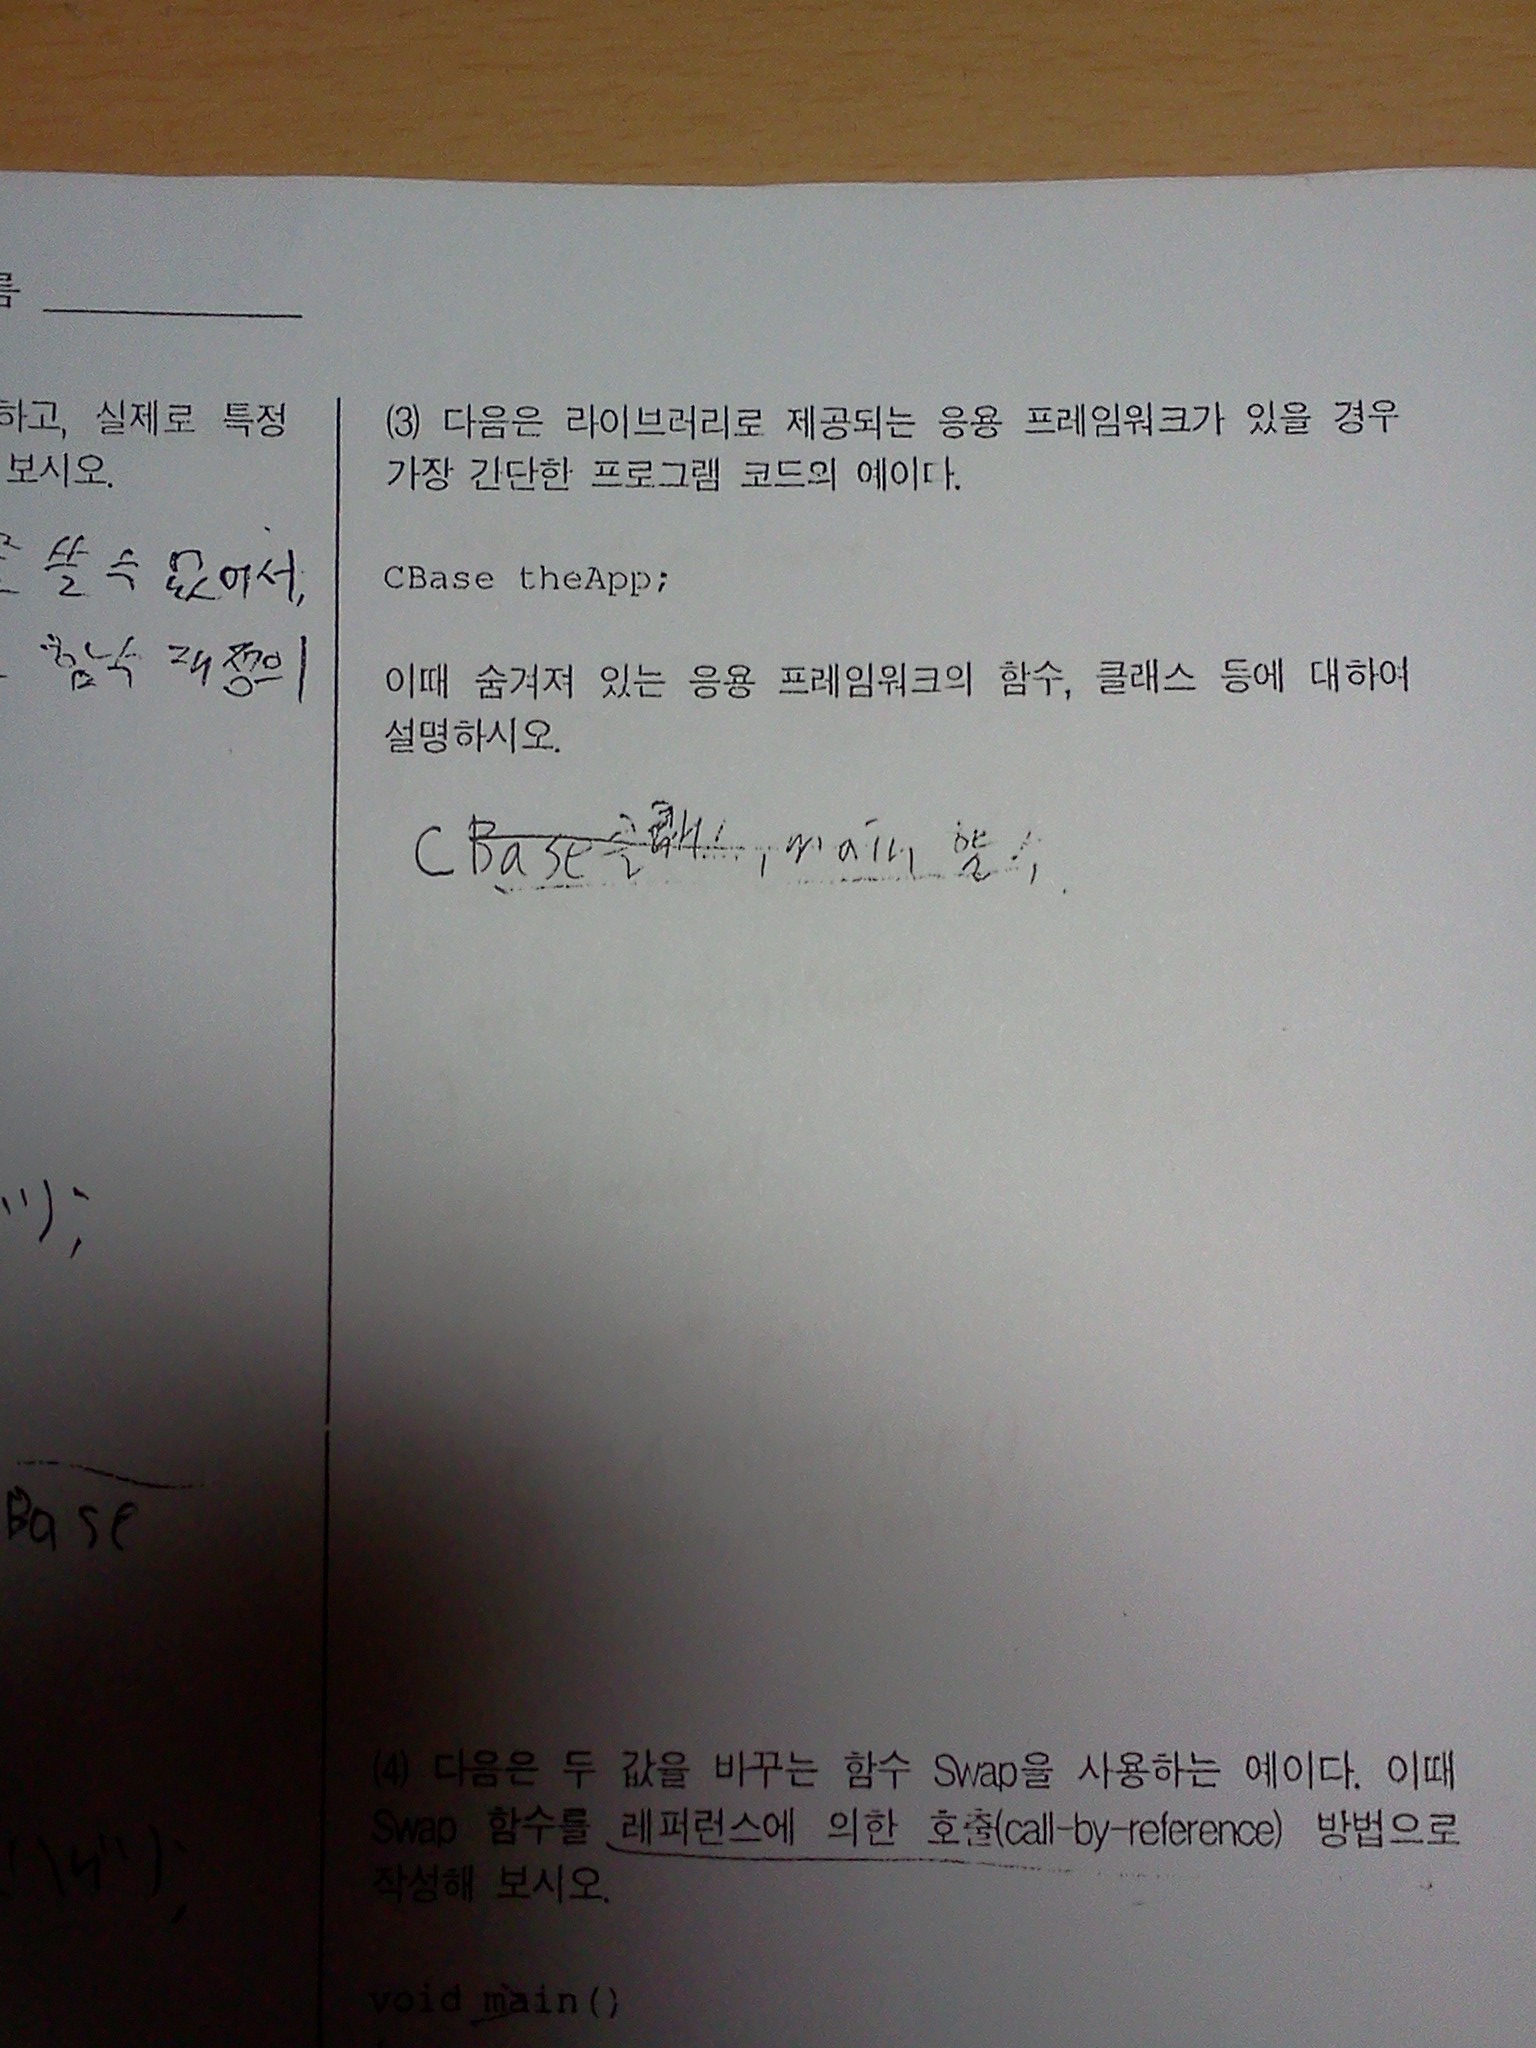 름
하고, 실제로 특정
보시오.
쓸 수 없어서,
함수 재정의
");
Base
!\n");
(3) 다음은 라이브러리로 제공되는 응용 프레임워크가 있을 경우
가장 간단한 프로그램 코드의 예이다.
CBase theApp;
이때 숨겨져 있는 응용 프레임워크의 함수, 클래스 등에 대하여
설명하시오.
CBase클래스, main 함수,
(4) 다음은 두 값을 바꾸는 함수 Swap을 사용하는 예이다. 이때
Swap 함수를 레퍼런스에 의한 호출(call-by-reference) 방법으로
작성해 보시오.
void main()